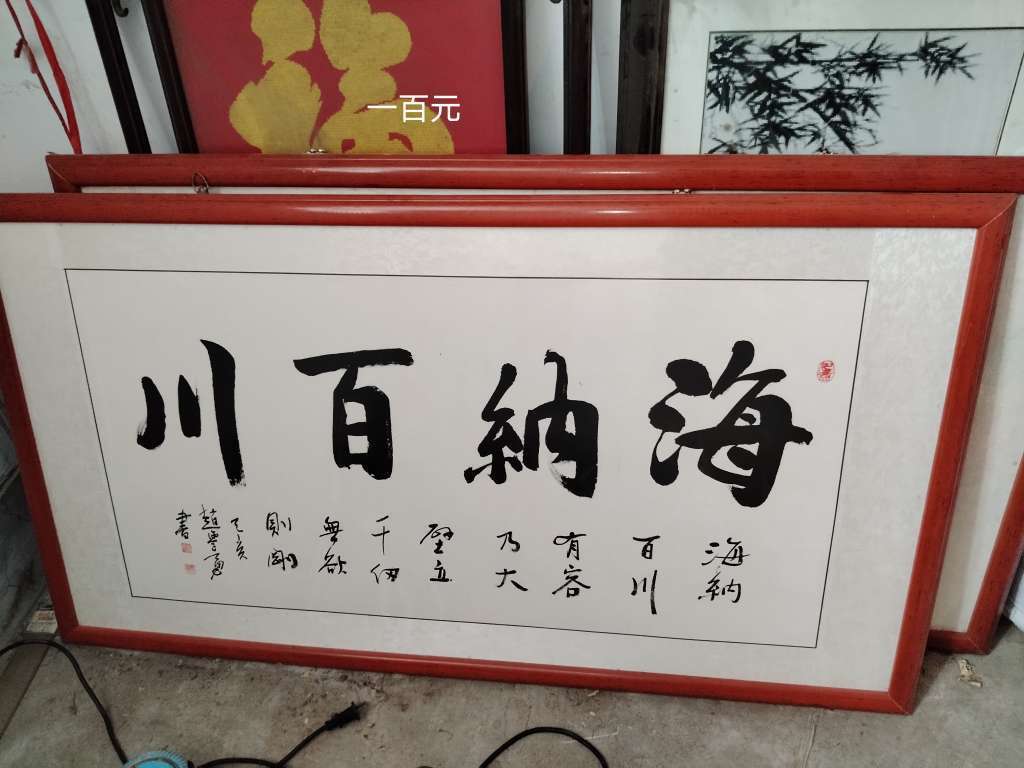 福
一百元
海納百川
海納
百川
有容
乃大
壁立
千仞
無欲
則剛
亥
趙
書